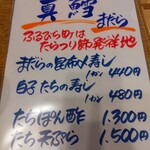 真鱈
まだら
ふるびら町は
たらつり節発祥地
まだらの昆布〆寿し
1カン 440円
白子たらの寿し
1カン 480円
たらぽん酢 1.300円
たら天ぷら 1.500円